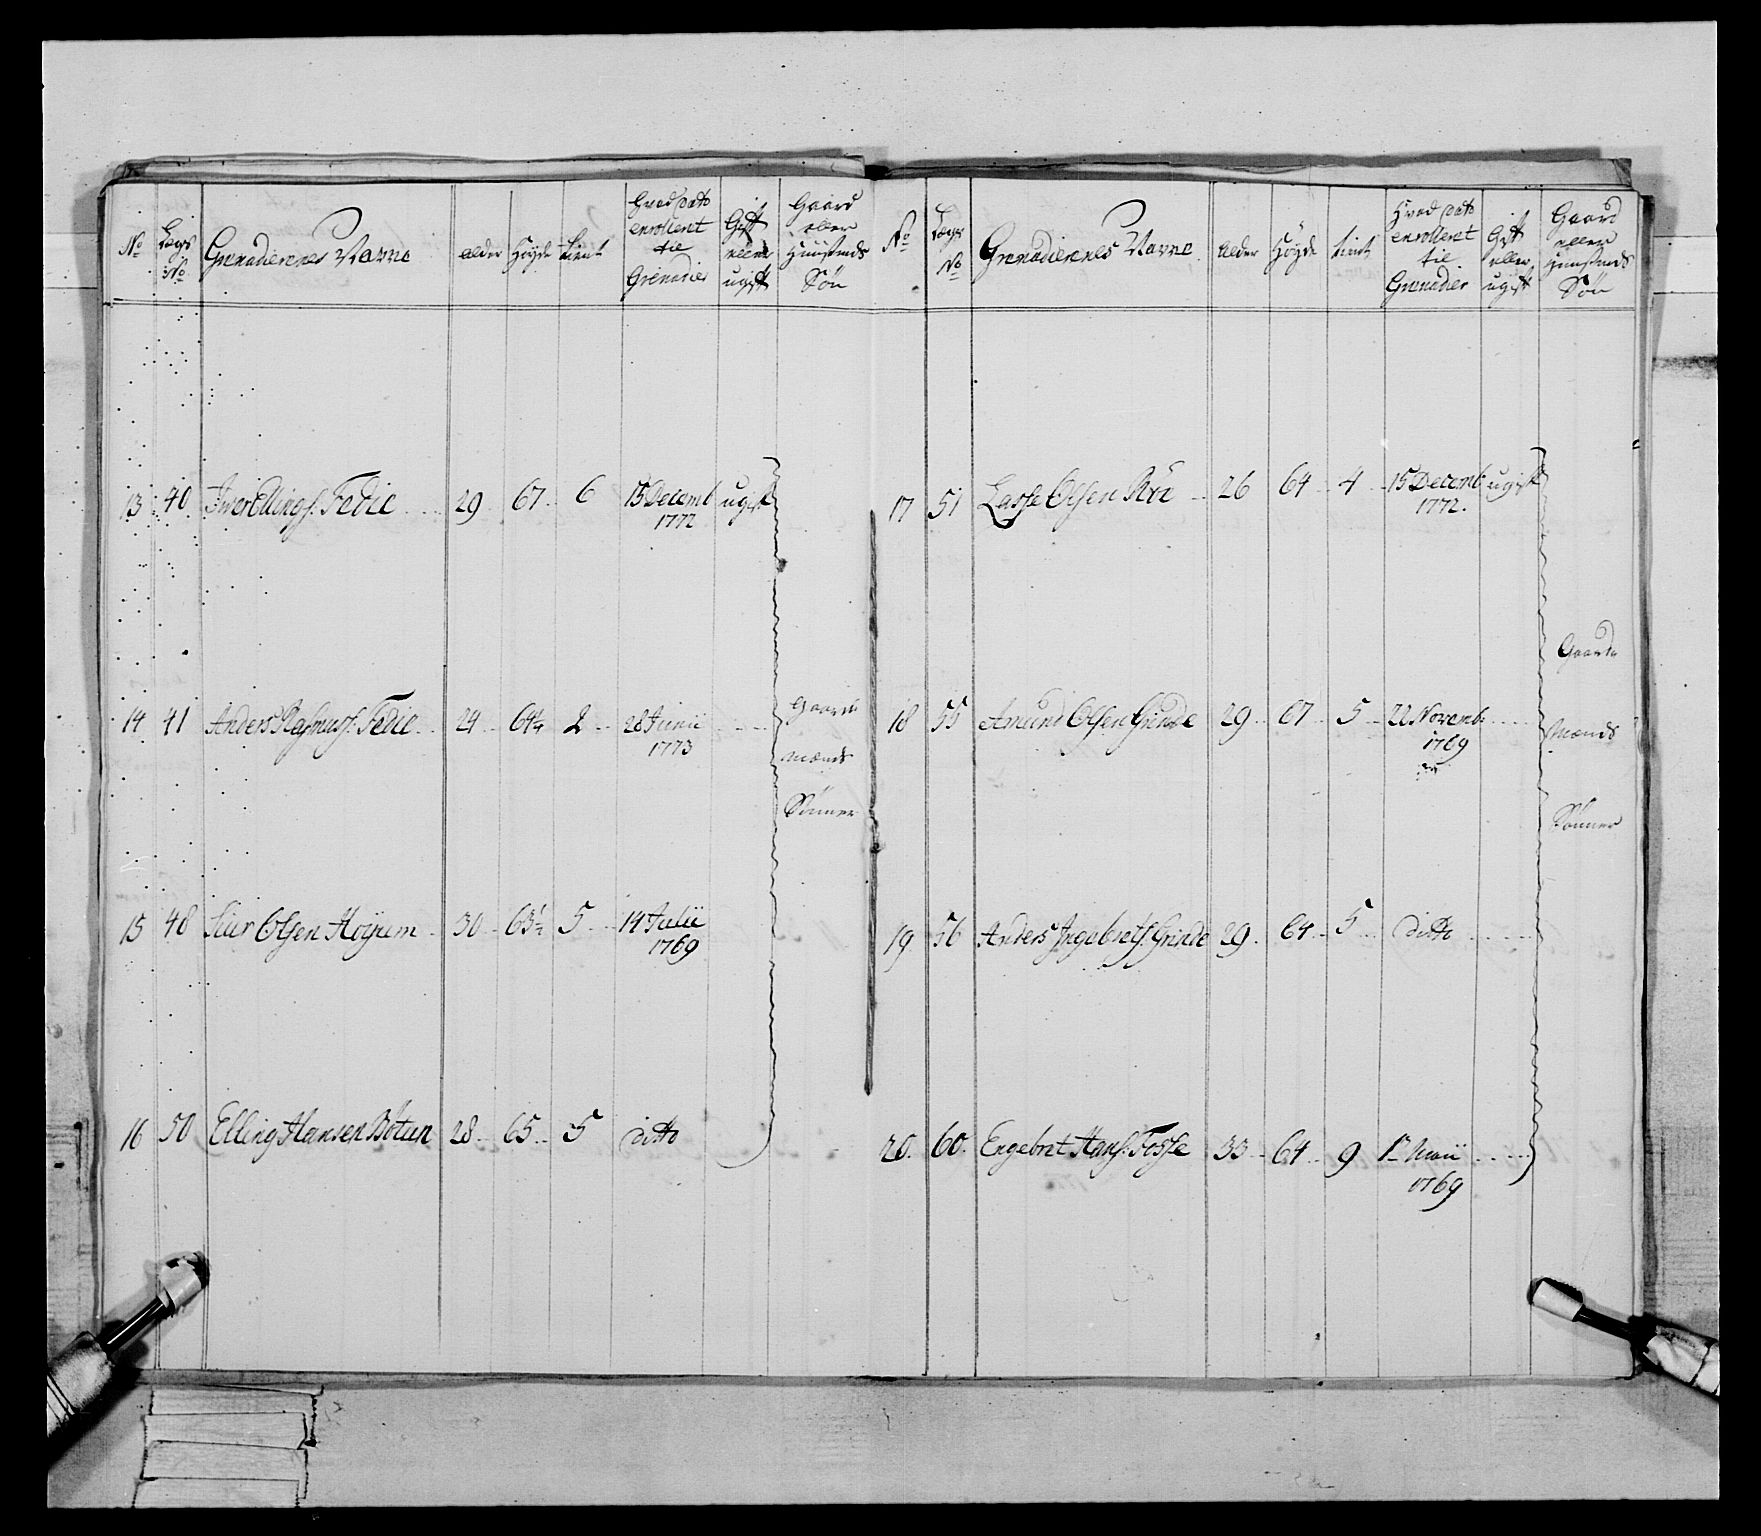 No Lægs No Grenadierenes Navne alder Høyde tient Hvad Dato enrollert til Grenadier Gift eller ugift Gaard eller Huusmds Søn
13 40 Iver Ellings. Fedie 29 67 6 15 Decemb 1772 ugift
14 41 Anders Rasmuss. Fedie 24 64¼ 2 28 Junii 1773
15 48 Siur Olsen Høyum 30 63½ 5 14 Julii 1769
16 50 Elling Hansen Bøtun 28 65 5 ditto
Gaard
mænds
Sønner
No Lægs No Grenadierenes Navne alder Høyde tient Hvad Dato enrollert til Grenadier Gift eller ugift Gaard eller Huusmds Søn
17 51 Lasse Olsen 26 64 4 15 Decemb 1772. ugift
18 55 Amund Olsen Grinde 29 67 5 22 Novemb. 1769
19 56 Anders Ingebrets. Grinde 29 64 5 ditto
20. 60. Engebret Hans. Fosse 33 64 9 1ste Maii 1769
Gaard
Mænds
Sønner